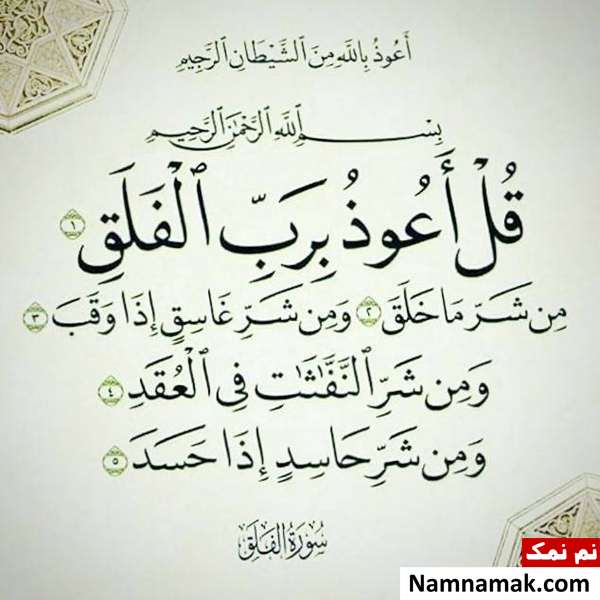 أَعُوذُ بِاللَّهِ مِنَ ٱلشَّيْطَانِ ٱلرَّجِيمِ
بِسْمِ ٱللَّهِ ٱلرَّحْمَٰنِ ٱلرَّحِيمِ
قُلْ أَعُوذُ بِرَبِّ ٱلْفَلَقِ ١
مِن شَرِّ مَا خَلَقَ ٢ وَمِن شَرِّ غَاسِقٍ إِذَا وَقَبَ ٣
وَمِن شَرِّ ٱلنَّفَّٰثَٰتِ فِى ٱلْعُقَدِ ٤
وَمِن شَرِّ حَاسِدٍ إِذَا حَسَدَ ٥
سُورَةُ ٱلْفَلَقِ
نم نمک
Namnamak.com